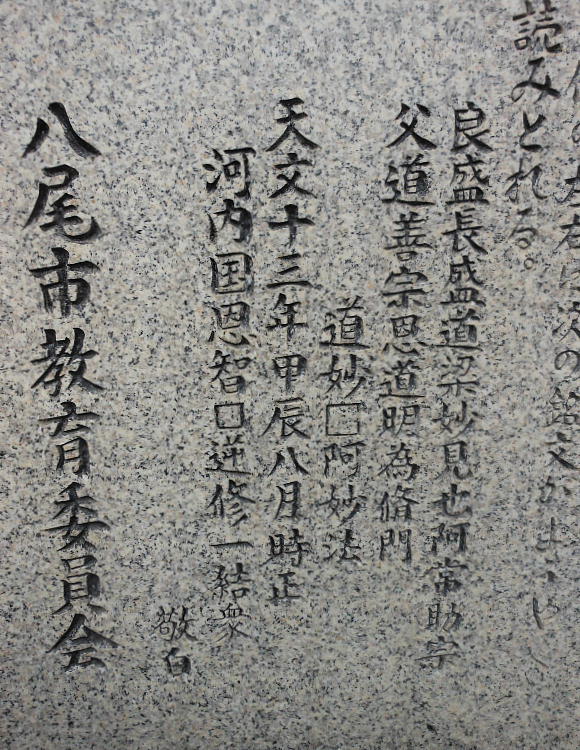 左右に次の銘文が
読みとれる。
良盛長盛道梁妙見也阿常助字
父道善宗恩道明為脩門
道妙□阿妙法
天文十三年甲辰八月時正
河内国恩智□逆修一結衆
敬白
八尾市教育委員会